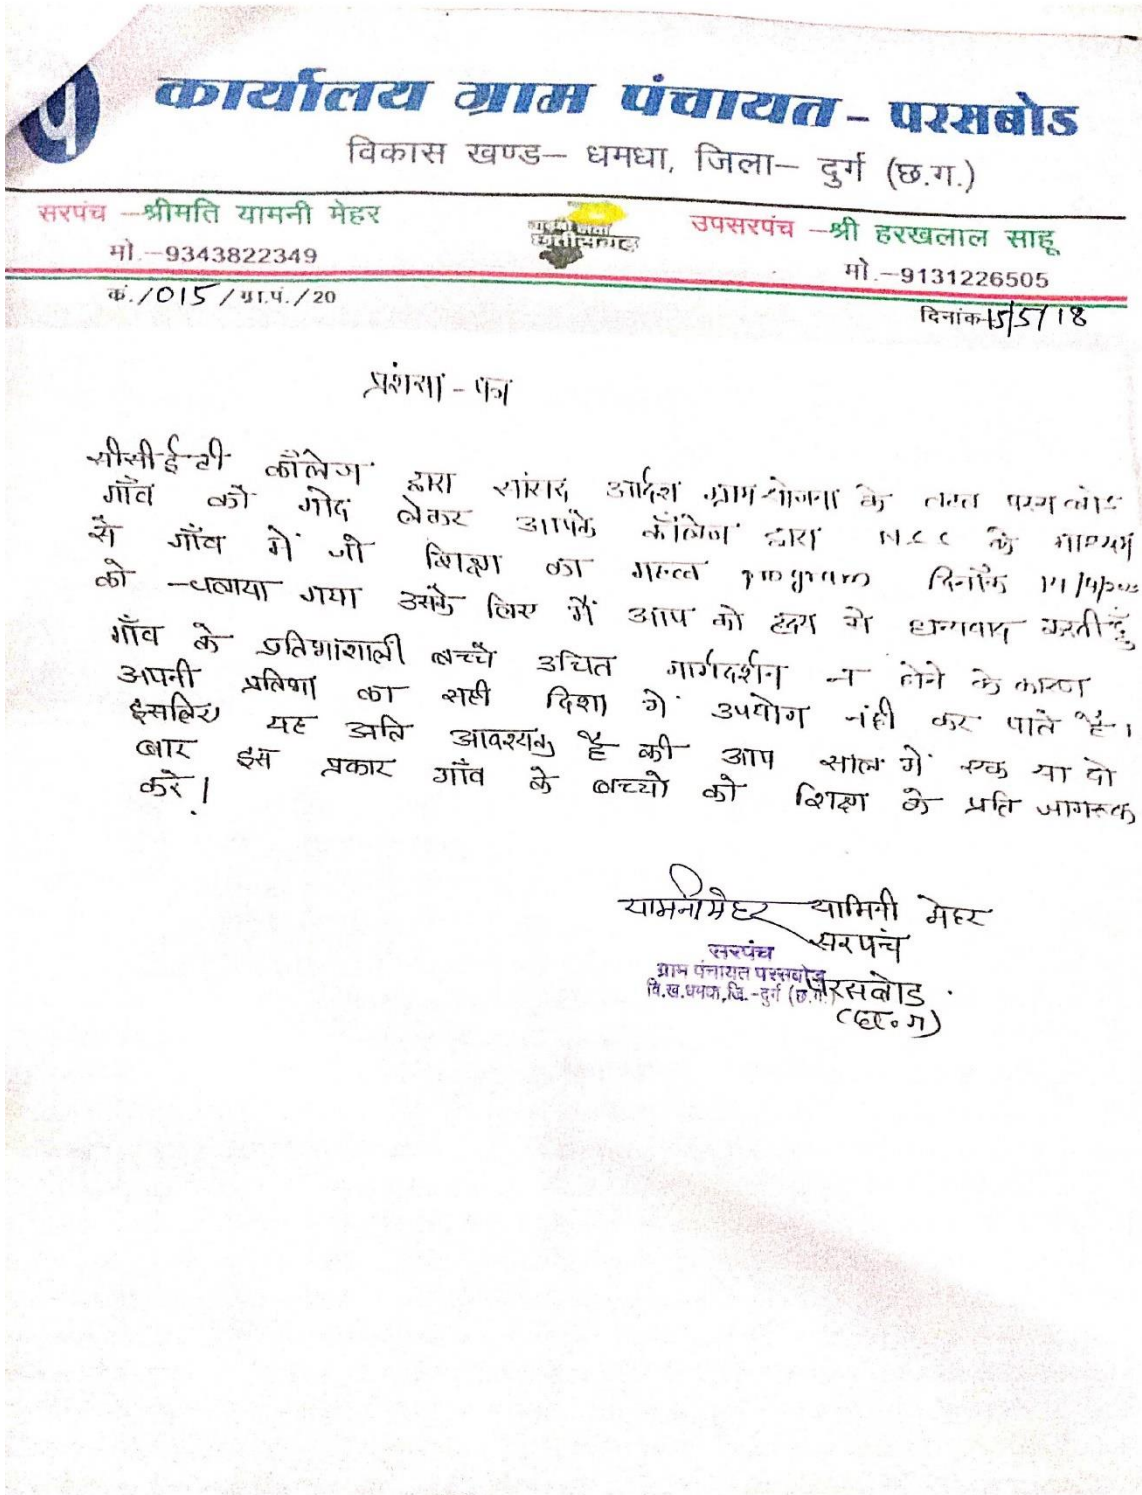 प
कार्यालय ग्राम पंचायत - परसबोड
विकास खण्ड– धमधा, जिला– दुर्ग (छ.ग.)
सरपंच –श्रीमति यामनी मेहर
मो.–9343822349
छत्तीसगढ़
उपसरपंच –श्री हरखलाल साहू
मो.–9131226505
कं./015/ग्रा.पं./20
दिनांक 15/5/18
प्रशंसा - पत्र
सीसीईटी कॉलेज द्वारा सांसद आर्दश ग्राम योजना के तहत परसबोड
गाँव को गोद लेकर आपके कॉलेज द्वारा N.C.C के माध्यम
से गाँव में जो शिक्षा का महत्व program दिनाँक 14/4/
को चलाया गया उसके लिए मैं आप को हृदय से धन्यवाद करती हुँ
गाँव के प्रतिभांशाली बच्चे उचित मार्गदर्शन न होने के कारण
अपनी प्रतिभा का सही दिशा में उपयोग नंही कर पाते है।
इसलिए यह अति आवश्यक है की आप साल में एक या दो
बार इस प्रकार गाँव के बच्चो को शिक्षा के प्रति जागरूक
करे।
यामनी मेहर यामिनी मेहर
सरपंच
परसबोड
(छ.ग)
सरपंच
ग्राम पंचायत परसबोड
वि.ख.धमधा, जि.-दुर्ग (छ.ग.)